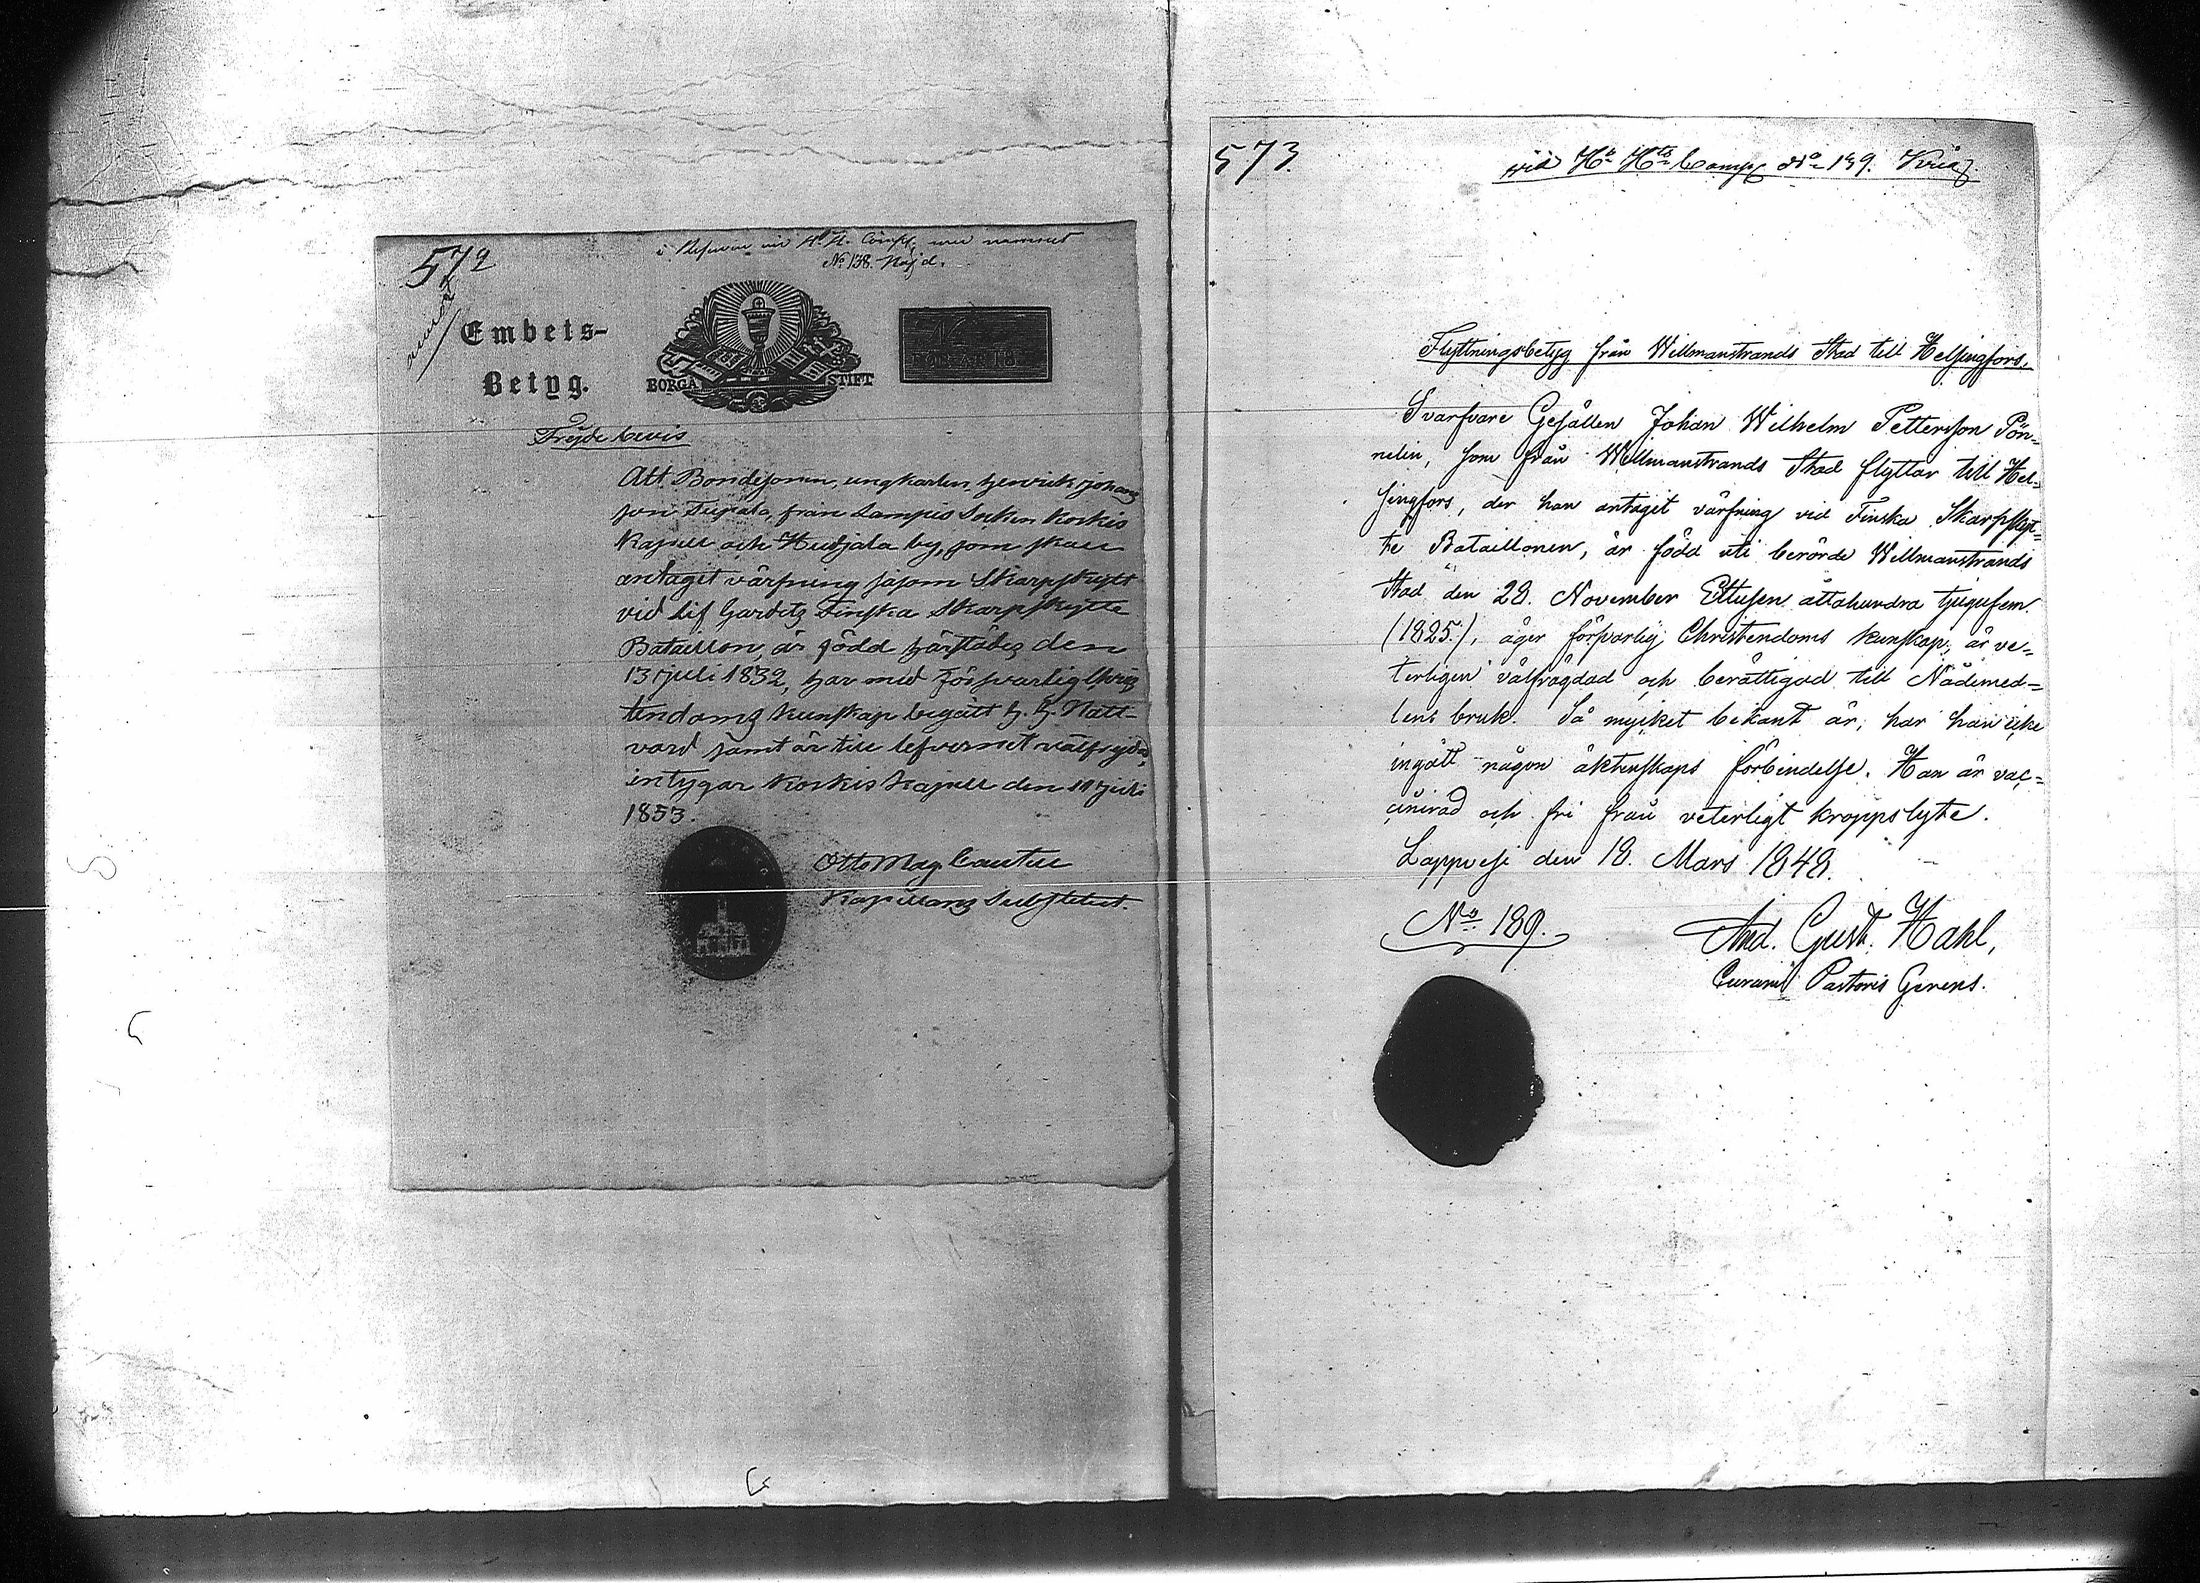 572
No 138. Nöjd.
Embets-
Betyg.
BORGÅ STIFT
Frejdebevis
Att Bondesonen, ungkarlen, Henrik Johans
son Tupala, från Lampis Socken Koskis
Kapell och Hutjala by, som skall
antagit värfning såsom Skarpskytt
vid Lif Gardets Finska Skarpskytte
Bataillon, är född härstädes den
13 juli 1832, har med försvarlig Chris
tendoms kunskap begått H. H. Natt-
vard samt är till lefvernet välfrejdad,
intygar Koskis Kapell den 11 juli
1853.
Otto Mag
Kapellans Substitut.
573.
vid Hs Hts Comp No 139. Krig.
Flyttningsbetyg från Willmanstrands Stad till Helsingfors.
Svarfvare Gesällen Johan Wilhelm Pettersson Pön-
nelin, som från Willmanstrands Stad flyttar till Hel-
singfors, der han antagit värfning vid Finska Skarpskyt-
te Bataillonen, är född uti berörde Willmanstrands
Stad den 28. November Ettusen åttahundra tjugufem.
(1825.), äger försvarlig Christendoms kunskap, är ve-
terligen välfrägdad och berättigad till Nådemed-
lens bruk. Så mycket bekant är, har han icke
ingått någon äktenskaps förbindelse. Han är vac-
cinerad och fri från veterligt kroppslyte.
Lappvesi den 18. Mars 1848.
No 189.
And. Gust. Hahl,
Curam Pastoris Gerens.